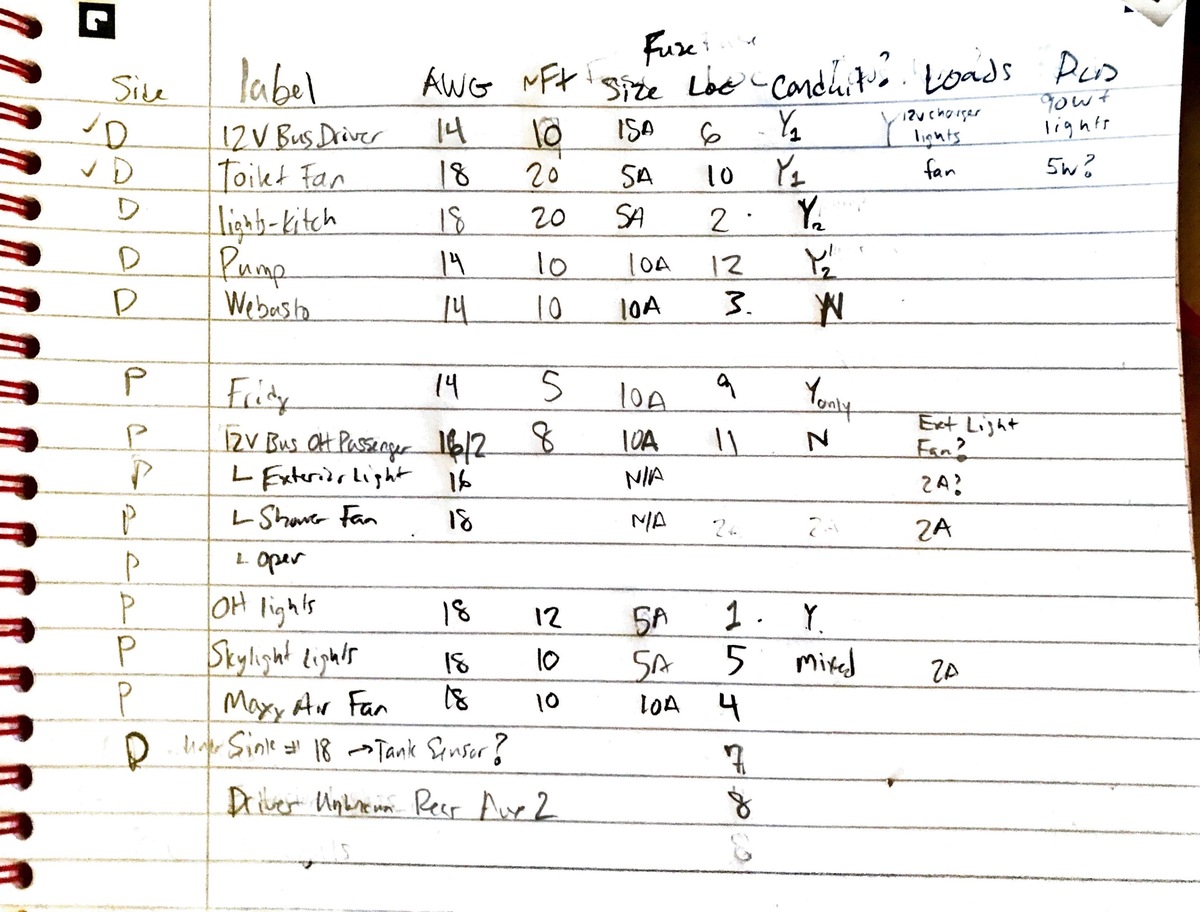 Fuze
Side label AWG ~Ft Size Loc Conduit? Loads
✓ D 12V Bus Driver 14 10 15A 6 Y1 12v charger lights 90w+ lights
✓ D Toilet Fan 18 20 5A 10 Y1 fan 5w?
D lights-kitch 18 20 5A 2 Y2
D Pump 14 10 10A 12 Y2
D Webasto 14 10 10A 3. N
P Fridg 14 5 10A 9 Y only
P 12V Bus OH Passenger 16/2 8 10A 11 N Ext Light Fan?
P L Exterior Light 16 N/A 2A?
P L Shower Fan 18 N/A 2A 2A 2A
P L Open
P OH lights 18 12 5A 1. Y.
P Skylight Lights 18 10 5A 5 mixed 2A
P Maxx Air Fan 18 10 10A 4
D Under Sink # 18 → Tank Sensor? 7
Driver Unknown Rear Aux 2 8
8